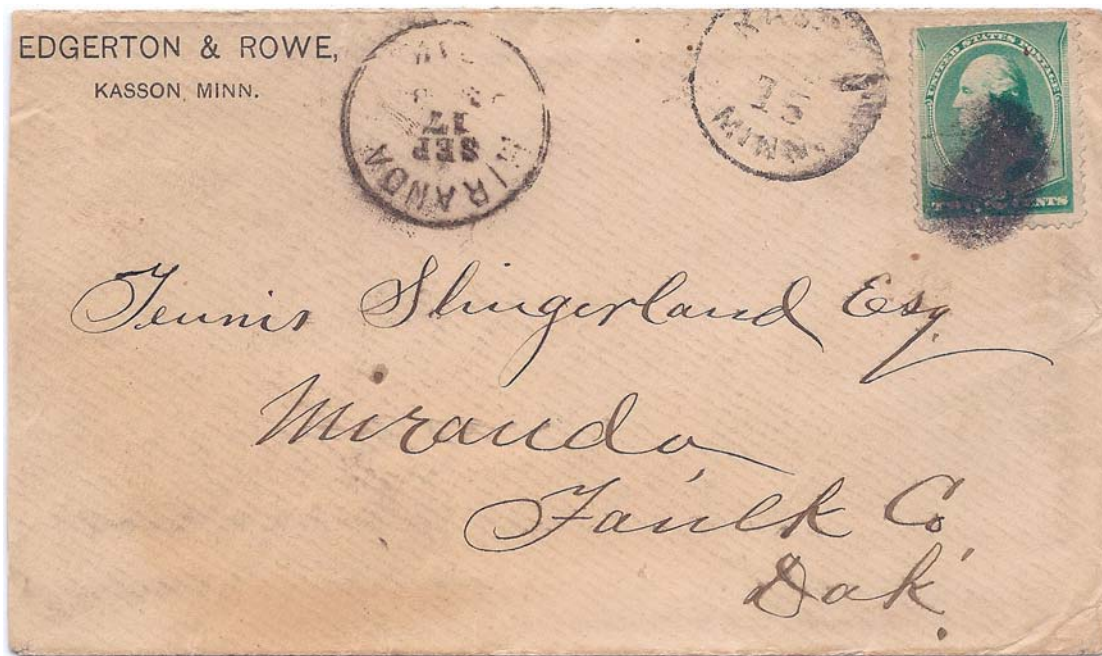 EDGERTON & ROWE,
KASSON, MINN.
MIRANDA
SEP
17
MINN
15
UNITED STATES POSTAGE
CENTS
Teunis Slingerland Esq
Miranda
Faulk Co
Dak.